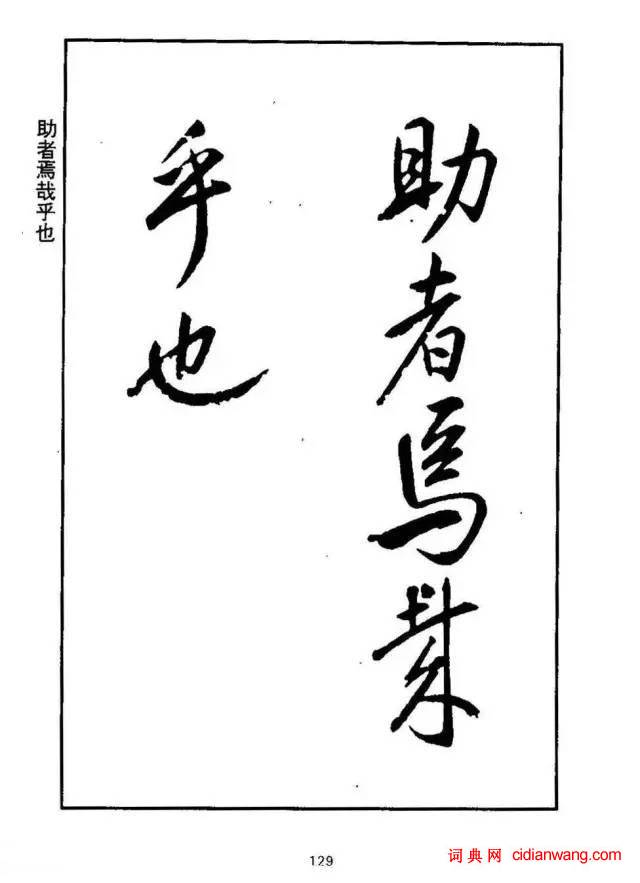 助者焉哉
乎也
助者焉哉乎也
129
词典网 cidianwang.com